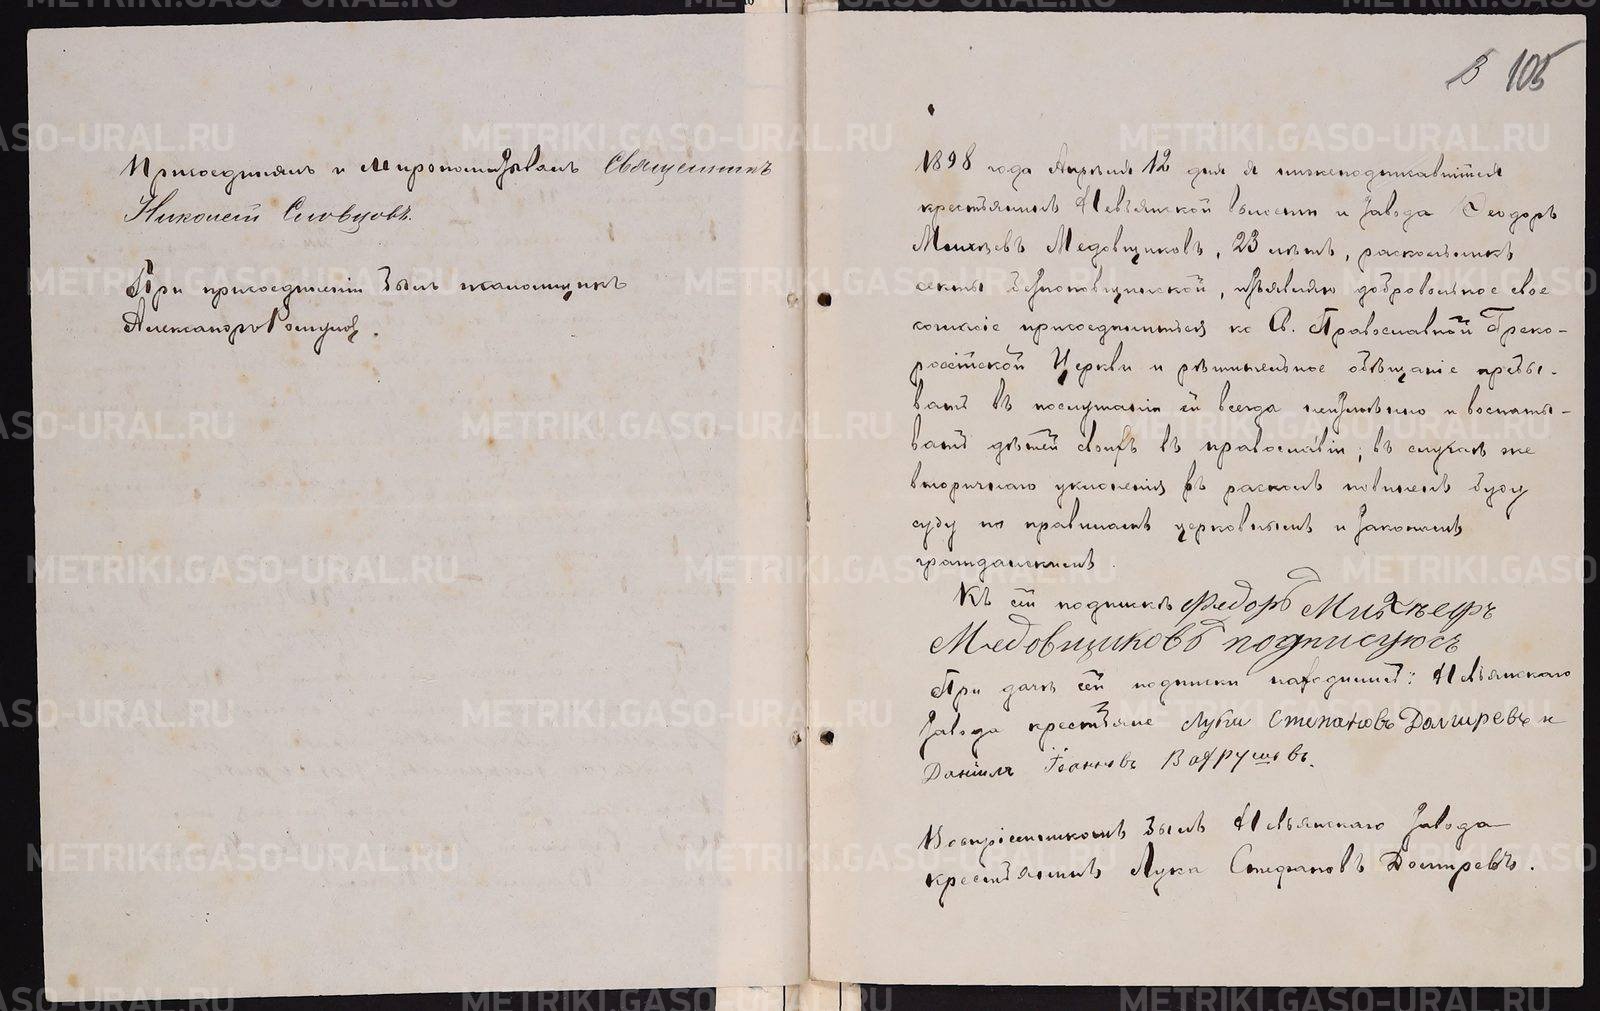 Присоединялъ и Миропомазывалъ Священникъ
Николай Словцовъ.
При присоединеніи былъ псаломщикъ
Александръ
105
1898 года Апрѣля 12 дня я нижеподписавшійся
крестьянинъ Невьянской волости и завода Ѳеодоръ
Михѣевъ Медовщиковъ, 23 лѣтъ, раскольникъ
секты безпоповщинской, изъявляю добровольное свое
согласіе присоединиться ко Св. Православной Греко-
россійской Церкви и рѣшительное обѣщаніе пребы-
вать въ послушаніи ей всегда неизмѣнно и воспиты-
вать дѣтей своихъ въ православіи; въ случаѣ же
вторичнаго уклоненія въ расколъ повиненъ буду
суду по правиламъ церковнымъ и законамъ
гражданскимъ.
Къ сей подпискѣ Федоръ Михѣефъ
Медовщиковъ подписуюсъ
При дачѣ сей подписки находились: Невьянскаго
завода крестьяне Лука Степановъ Долгиревъ и
Даніилъ Іоанновъ Вахрушовъ.
Воспріемникомъ былъ Невьянскаго завода
крестьянинъ Лука Стефановъ Долгиревъ.
METRIKI.GASO-URAL.RU